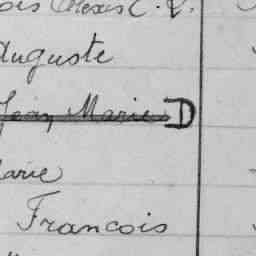 ois Alexis C. L.
Auguste
Jean Marie D
Marie
Francois